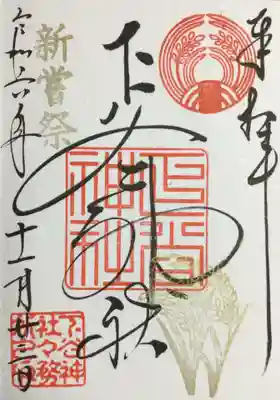 奉拝
下谷神社
下谷神社
新嘗祭
令和六年十一月廿三日
下谷神
社々務